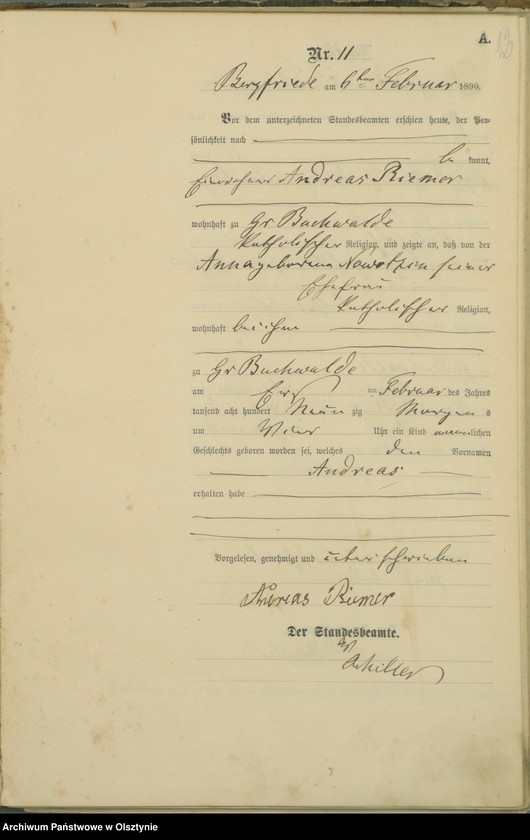 A.
Nr. 11
Bergfriede am 6ten Februar 1890.
Vor dem unterzeichneten Standesbeamten erschien heute, der Per=
sönlichkeit nach
be kannt,
Einwohner Andreas Riemer
wohnhaft zu Gr Buchwalde
katholischer Religion, und zeigte an, daß von der
Anna geborene seiner
Ehefrau
katholischer Religion,
wohnhaft bei ihm
zu Gr Buchwalde
am ten Februar des Jahres
tausend acht hundert Neun zig Morgen s
um Vier Uhr ein Kind männlichen
Geschlechts geboren worden sei, welches den Vornamen
Andreas
erhalten habe
Vorgelesen, genehmigt und unterschrieben
Andreas Riemer
Der Standesbeamte.
Archiwum Państwowe w Olsztynie